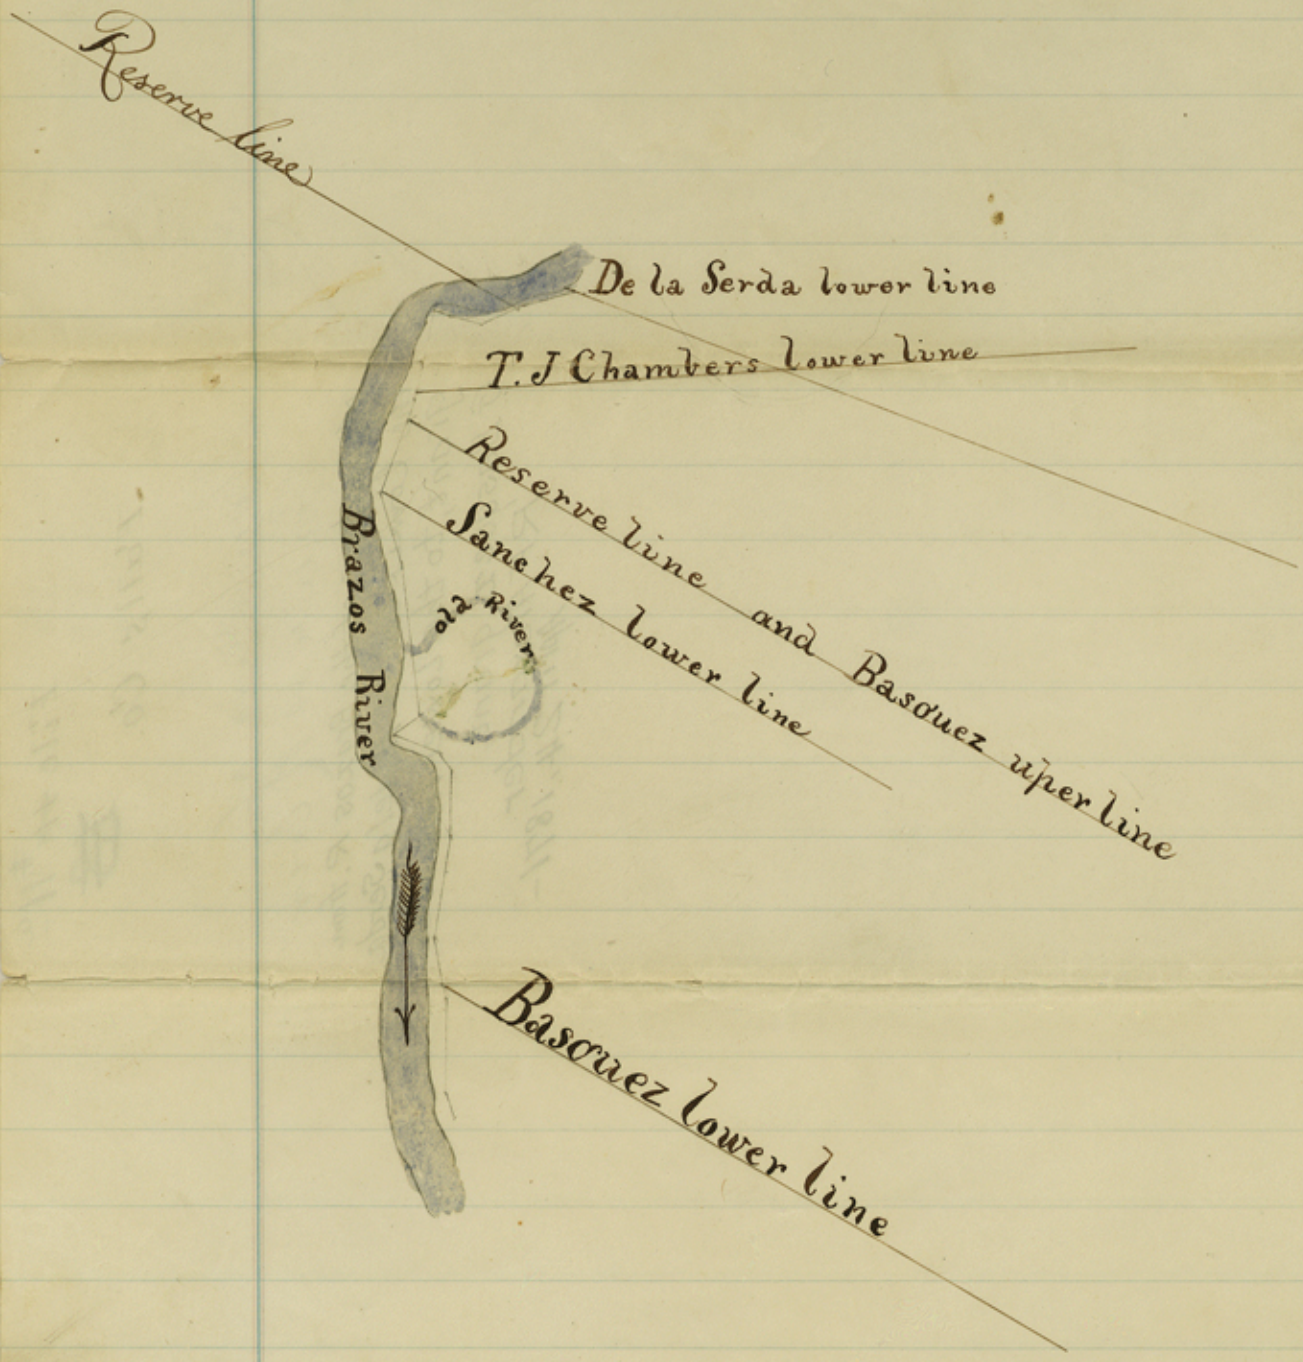 Reserve line
De la Serda lower line
T. J Chambers lower line
Reserve line and Basquez uper line
Sanchez lower line
old River
Brazos River
Basquez lower line